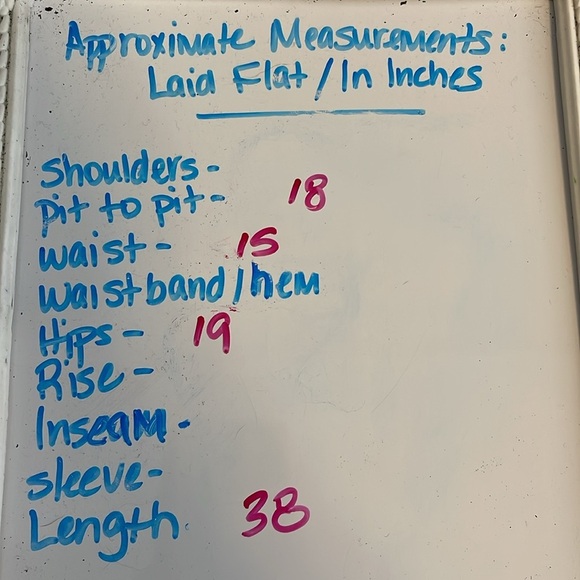 Approximate Measurements:
Laid Flat/In Inches
Shoulders-
pit to pit- 18
waist- 15
waistband/hem
Hips- 19
Rise-
Inseam-
sleeve-
Length 38